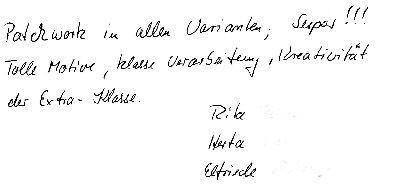 Patchwork in allen Varianten, Super!!!
Tolle Motive, klasse Verarbeitung, Kreativität
der Extra-Klasse.
Rita
Herta
Elfriede